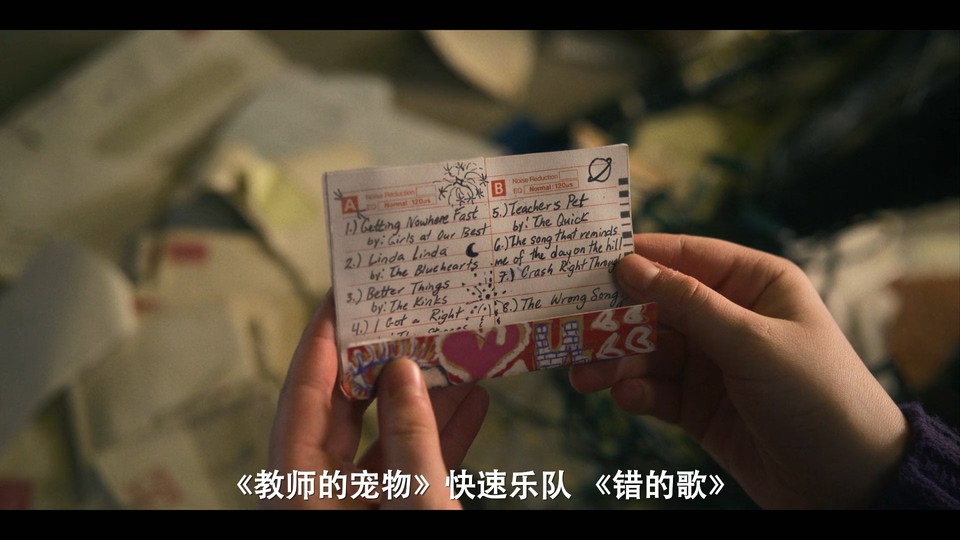 A Noise Reduction
Normal 120us
1.) Getting Nowhere Fast
by: Girls at Our Best
2.) Linda Linda
by: The Bluehearts
3.) Better Things
by: The Kinks
4.) I Got a Right
B Noise Reduction
EQ Normal 120us
5.) Teachers Pet
by: The Quick
6.) The song that reminds
me of the day on the hill
7.) Crash Right Through
8.) The Wrong Song
《教师的宠物》快速乐队 《错的歌》